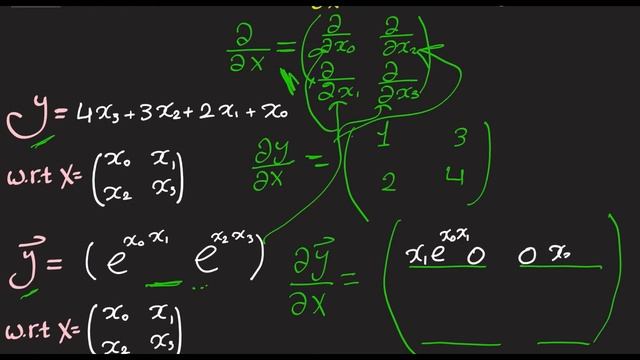 ∂/∂x = (∂/∂x₀ ∂/∂x₂
∂/∂x₁ ∂/∂x₃)
y = 4x₃+3x₂+2x₁+x₀
w.r.t X = (x₀ x₁
x₂ x₃)
∂y/∂x = (1 3
2 4)
y⃗ = (e^{x₀x₁} e^{x₂x₃})
∂y⃗/∂x = (x₁e^{x₀x₁} 0 0 x₀
w.r.t X = (x₀ x₁
x₂ x₃